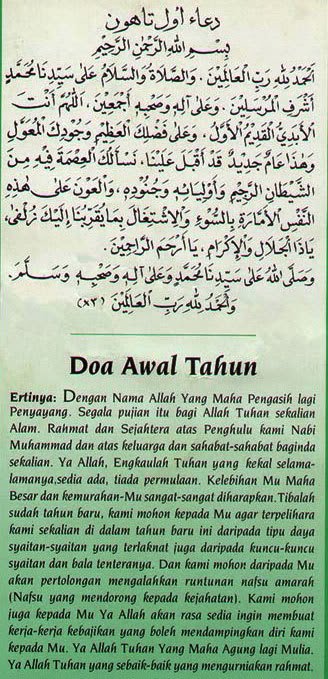 دعاء اول تاهون
بِسْمِ اللهِ الرَّحْمٰنِ الرَّحِيْمِ
اَلْحَمْدُ لِلّٰهِ رَبِّ الْعَالَمِيْنَ . وَالصَّلَاةُ وَالسَّلَامُ عَلٰى سَيِّدِنَا مُحَمَّدٍ
أَشْرَفِ الْمُرْسَلِيْنَ . وَعَلٰى آلِهِ وَصَحْبِهِ أَجْمَعِيْنَ . اَللّٰهُمَّ أَنْتَ
الْأَبَدِيُّ الْقَدِيْمُ الْأَوَّلُ . وَعَلٰى فَضْلِكَ الْعَظِيْمِ وَجُوْدِكَ الْمُعَوَّلُ
وَهٰذَا عَامٌ جَدِيْدٌ قَدْ أَقْبَلَ عَلَيْنَا . نَسْأَلُكَ الْعِصْمَةَ فِيْهِ مِنَ
الشَّيْطَانِ الرَّجِيْمِ وَأَوْلِيَائِهِ وَجُنُوْدِهِ . وَالْعَوْنَ عَلٰى هٰذِهِ
النَّفْسِ الْأَمَّارَةِ بِالسُّوْءِ وَالْاِشْتِغَالَ بِمَا يُقَرِّبُنَا إِلَيْكَ زُلْفٰى .
يَاذَا الْجَلَالِ وَالْإِكْرَامِ . يَا أَرْحَمَ الرَّاحِمِيْنَ .
وَصَلَّى اللهُ عَلٰى سَيِّدِنَا مُحَمَّدٍ وَعَلٰى آلِهِ وَصَحْبِهِ وَسَلَّمَ .
وَالْحَمْدُ لِلّٰهِ رَبِّ الْعَالَمِيْنَ (٣×)
Doa Awal Tahun
Ertinya: Dengan Nama Allah Yang Maha Pengasih lagi
Penyayang. Segala pujian itu bagi Allah Tuhan sekalian
Alam. Rahmat dan Sejahtera atas Penghulu kami Nabi
Muhammad dan atas keluarga dan sahabat-sahabat baginda
sekalian. Ya Allah, Engkaulah Tuhan yang kekal selama-
lamanya,sedia ada, tiada permulaan. Kelebihan Mu Maha
Besar dan kemurahan-Mu sangat-sangat diharapkan.Tibalah
sudah tahun baru, kami mohon kepada Mu agar terpelihara
kami sekalian di dalam tahun baru ini daripada tipu daya
syaitan-syaitan yang terlaknat juga daripada kuncu-kuncu
syaitan dan bala tenteranya. Dan kami mohon daripada Mu
akan pertolongan mengalahkan runtunan nafsu amarah
(Nafsu yang mendorong kepada kejahatan). Kami mohon
juga kepada Mu Ya Allah akan rasa sedia ingin membuat
kerja-kerja kebajikan yang boleh mendampingkan diri kami
kepada Mu. Ya Allah Tuhan Yang Maha Agung lagi Mulia.
Ya Allah Tuhan yang sebaik-baik yang mengurniakan rahmat.